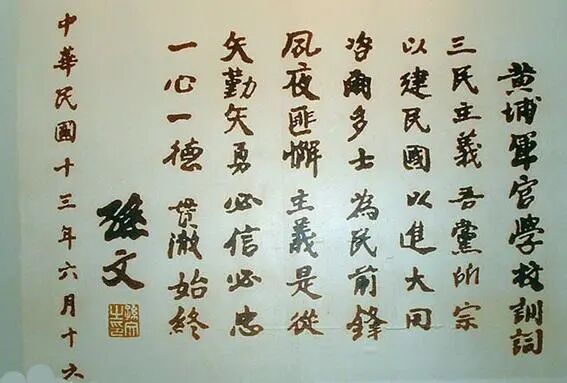 黄埔軍官學校訓詞
三民主義 吾黨所宗
以建民國 以進大同
咨爾多士 為民前鋒
夙夜匪懈 主義是從
矢勤矢勇 必信必忠
一心一德 貫澈始終
孫文
孫文之印
中華民國十三年六月十六